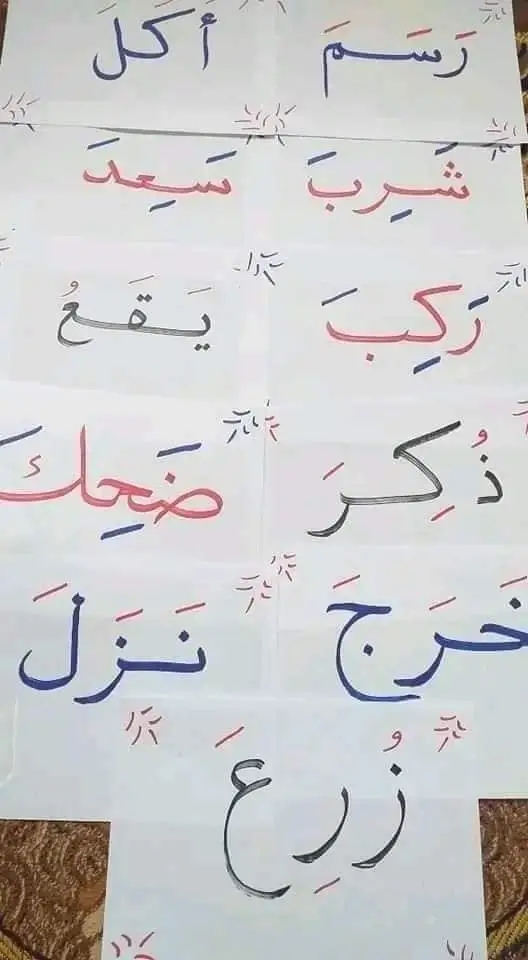 رَسَمَ أَكَلَ
شَرِبَ سَعِدَ
رَكِبَ يَقَعُ
ذُكِرَ ضَحِكَ
خَرَجَ نَزَلَ
زُرِعَ